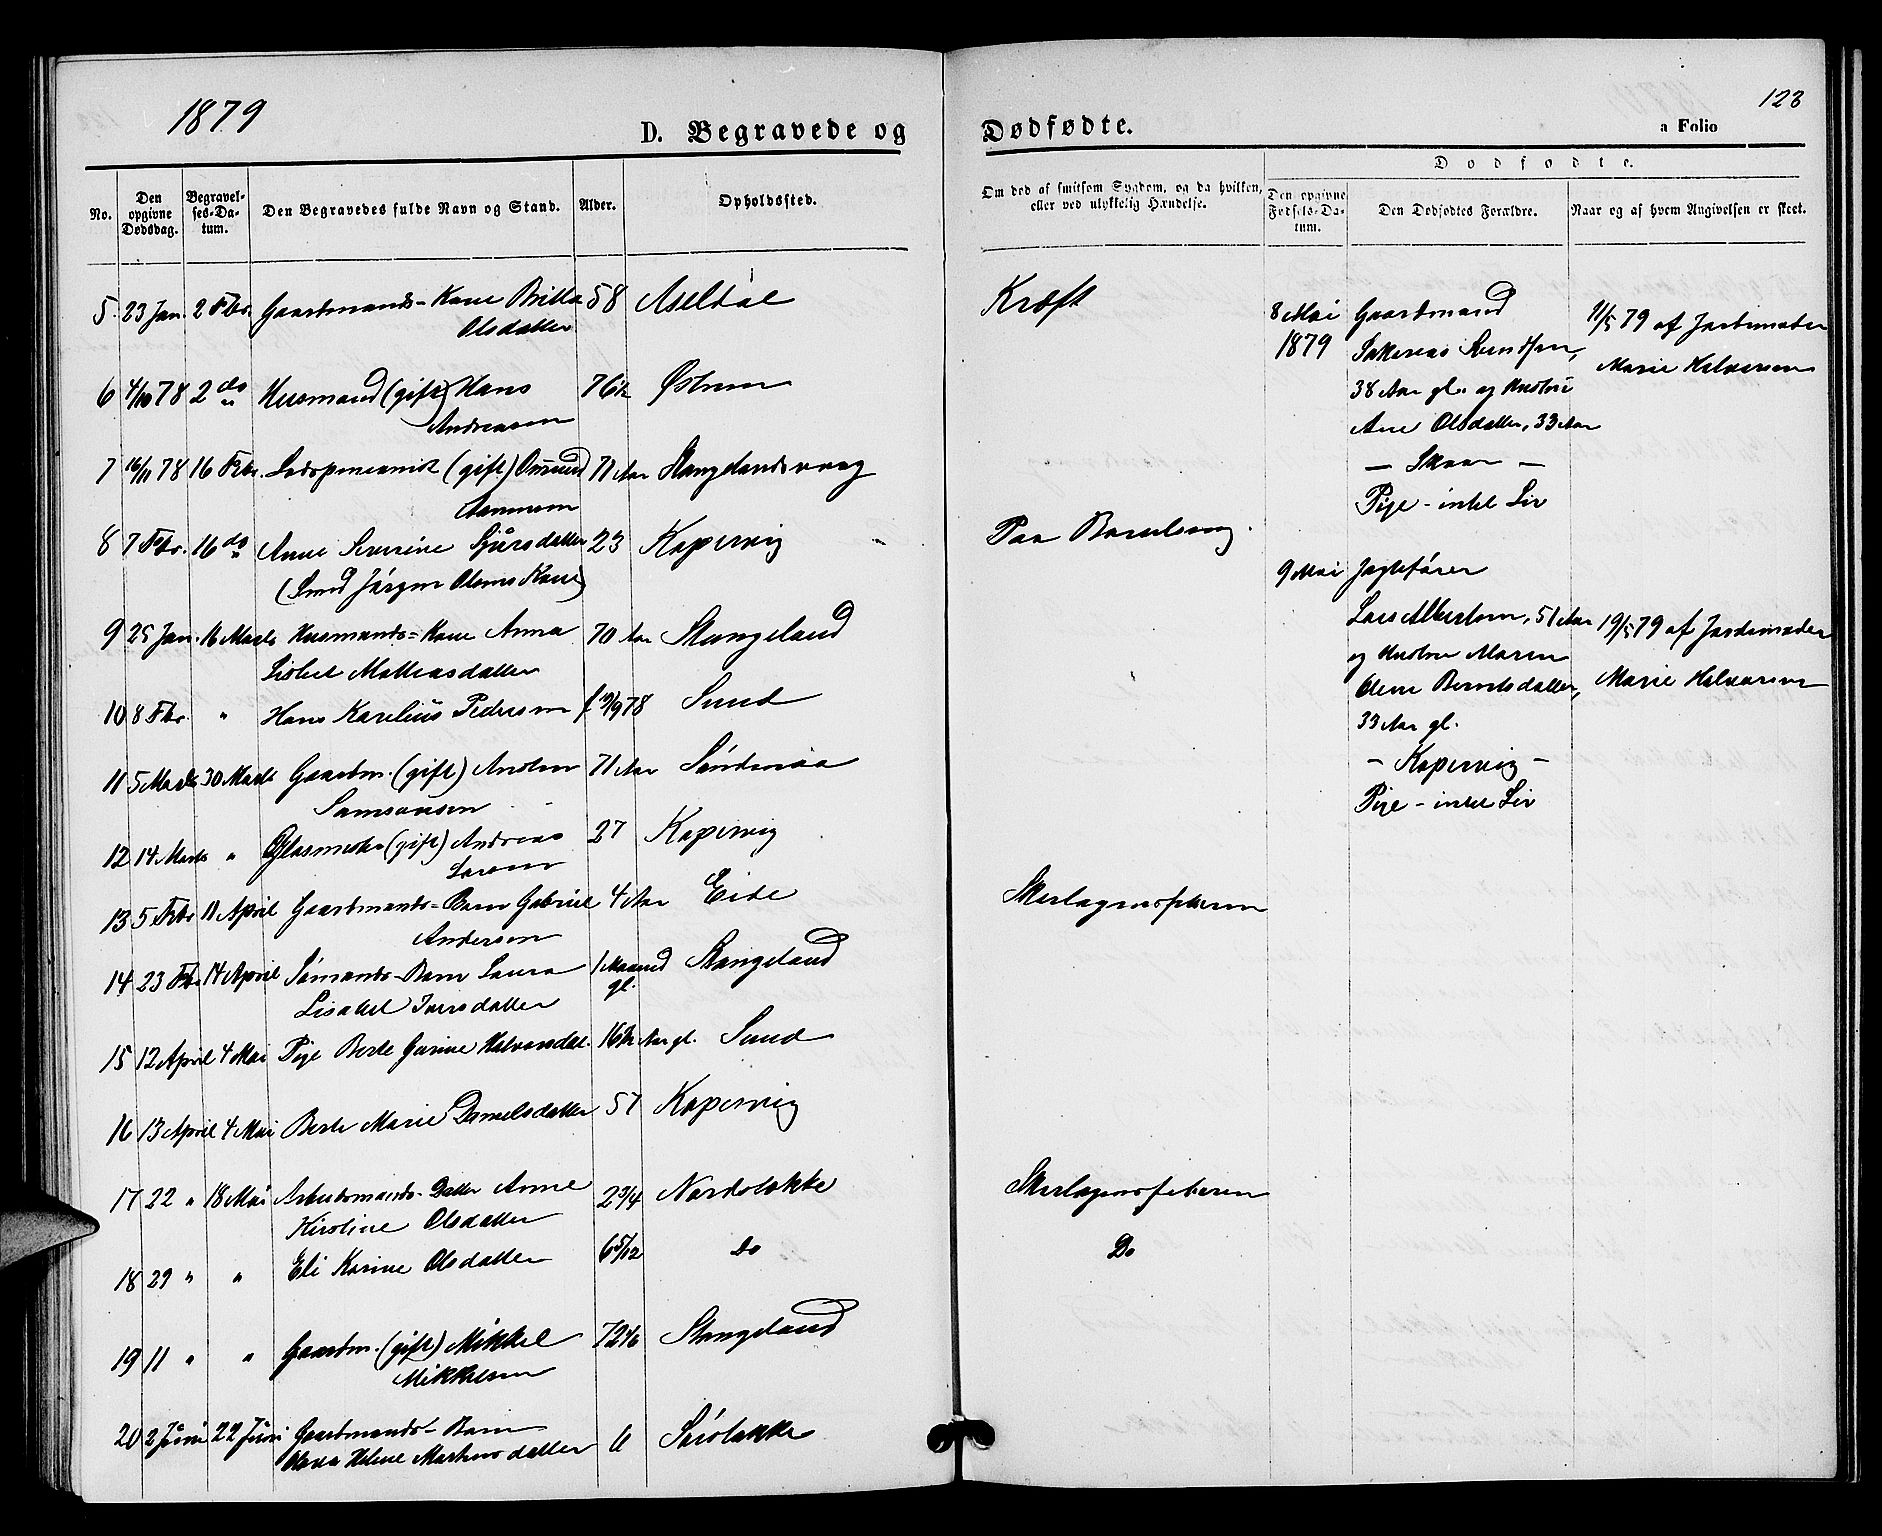 1879
D. Begravede og Dødfødte.
123
a Folio
No.
Den opgivne Dødsdag.
Begravelses-Datum.
Den Begravedes fulde Navn og Stand.
Alder.
Opholdssted.
Om død af smitsom Sygdom, og da hvilken, eller ved ulykkelig Hændelse.
Dødfødte.
Den opgivne Fødsels-Datum.
Den Dødfødtes Forældre.
Naar og af hvem Angivelsen er skeet.
5. 23 Jan. 2 Fbr. Gaardmands-Kone Britta 58 Aseldal Kræft
Olsdatter
6 4/10 78 2 do Husmand (gift) Hans 76 1/2 Østrem
Andreasen
7 16/11 78 16 Fbr. (gift) Omund 71 Aar Stangelandsvaag
8 7 Fbr. 16 do Anne Severine Sjursdatter 23 Kopervig Paa Barselseng.
(Smed Jørgen Olsens Kone)
9 25 Jan. 16 Marts Husmands-Kone Anna 70 Aar Stangeland
Lisbet Mathiasdatter
10 8 Fbr. " Hans Karelius Pedersen f. 19/9 78 Sund
11 5 Marts 30 Marts Gaardm. (gift) 71 Aar
Samsonsen
12 14 Marts " Glasmester (gift) Andreas 27 Kopervig
Larsen
13 5 Fbr. 11 April Gaardmands-Barn Gabriel 4 Aar Eide Skarlagensfeberen
Andersen
14 23 Fbr. 14 April Sømands-Barn Laura 1 Maaned gl. Stangeland
Lisabet Iversdatter
15 12 April 4 Mai Pige Berte Gurine Halvorsdat. 16 1/2 Aar gl. Sund
16 13 April 4 Mai Berte Marie Danielsdatter 57 Kopervig
17 22 " 18 Mai Arbeidsmands-Datter Anne 2 3/4 Nordstokke Skarlagensfeberen
Kirstine Olsdatter
18 29 " " Eli Karine Olsdatter 6 5/12 Do Do
19 11 " " Gaardm. (gift) Mikkel 72 4/6 Stangeland
Mikkelsen
20 2 Juni 22 Juni Gaardmands-Barn
Helene Martinsdatter 6 Sørstokke
8 Mai Gaardmand
1879 Sakarias
38 Aar gl. og Hustru
Ane Olsdatter, 33 Aar
- Skaar -
Pige - intet Liv
11/5 79 af Jordemoder
Marie Halvorsen
9 Mai Jagtefører
Lars Albertsen, 51 Aar
og Hustru Maren
Olene Berntsdatter,
33 Aar gl.
- Kopervig -
Pige - intet Liv
19/5 79 af Jordemoder
Marie Halvorsen